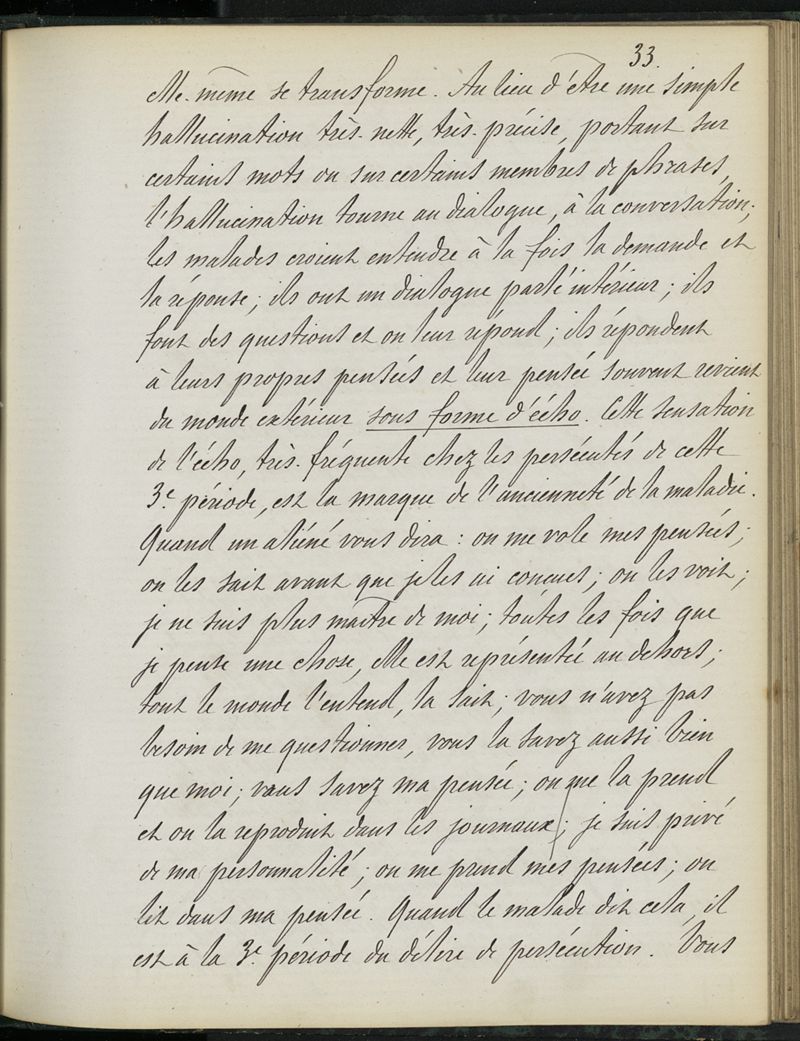 33.
elle-même se transforme. Au lieu d'être une simple
hallucination très-nette, très-précise, portant sur
certains mots ou sur certains membres de phrases,
l'hallucination tourne au dialogue, à la conversation;
les malades croient entendre à la fois la demande et
la réponse; ils ont un dialogue parlé intérieur; ils
font des questions et on leur répond; ils répondent
à leurs propres pensées et leur pensée souvent revient
du monde extérieur sous forme d'écho. Cette sensation
de l'écho, très-fréquente chez les persécutés de cette
3e période, est la marque de l'ancienneté de la maladie.
Quand un aliéné vous dira: on me vole mes pensées;
on les sait avant que je les ai conçues; on les voit;
je ne suis plus maître de moi; toutes les fois que
je pense une chose, elle est représentée au dehors;
tout le monde l'entend, la sait; vous n'avez pas
besoin de me questionner, vous la savez aussi bien
que moi; vous savez ma pensée; on me la prend
et on la reproduit dans les journaux; je suis privé
de ma personnalité; on me prend mes pensées; on
lit dans ma pensée. Quand le malade dit cela, il
est à la 3e période du délire de persécution. Vous